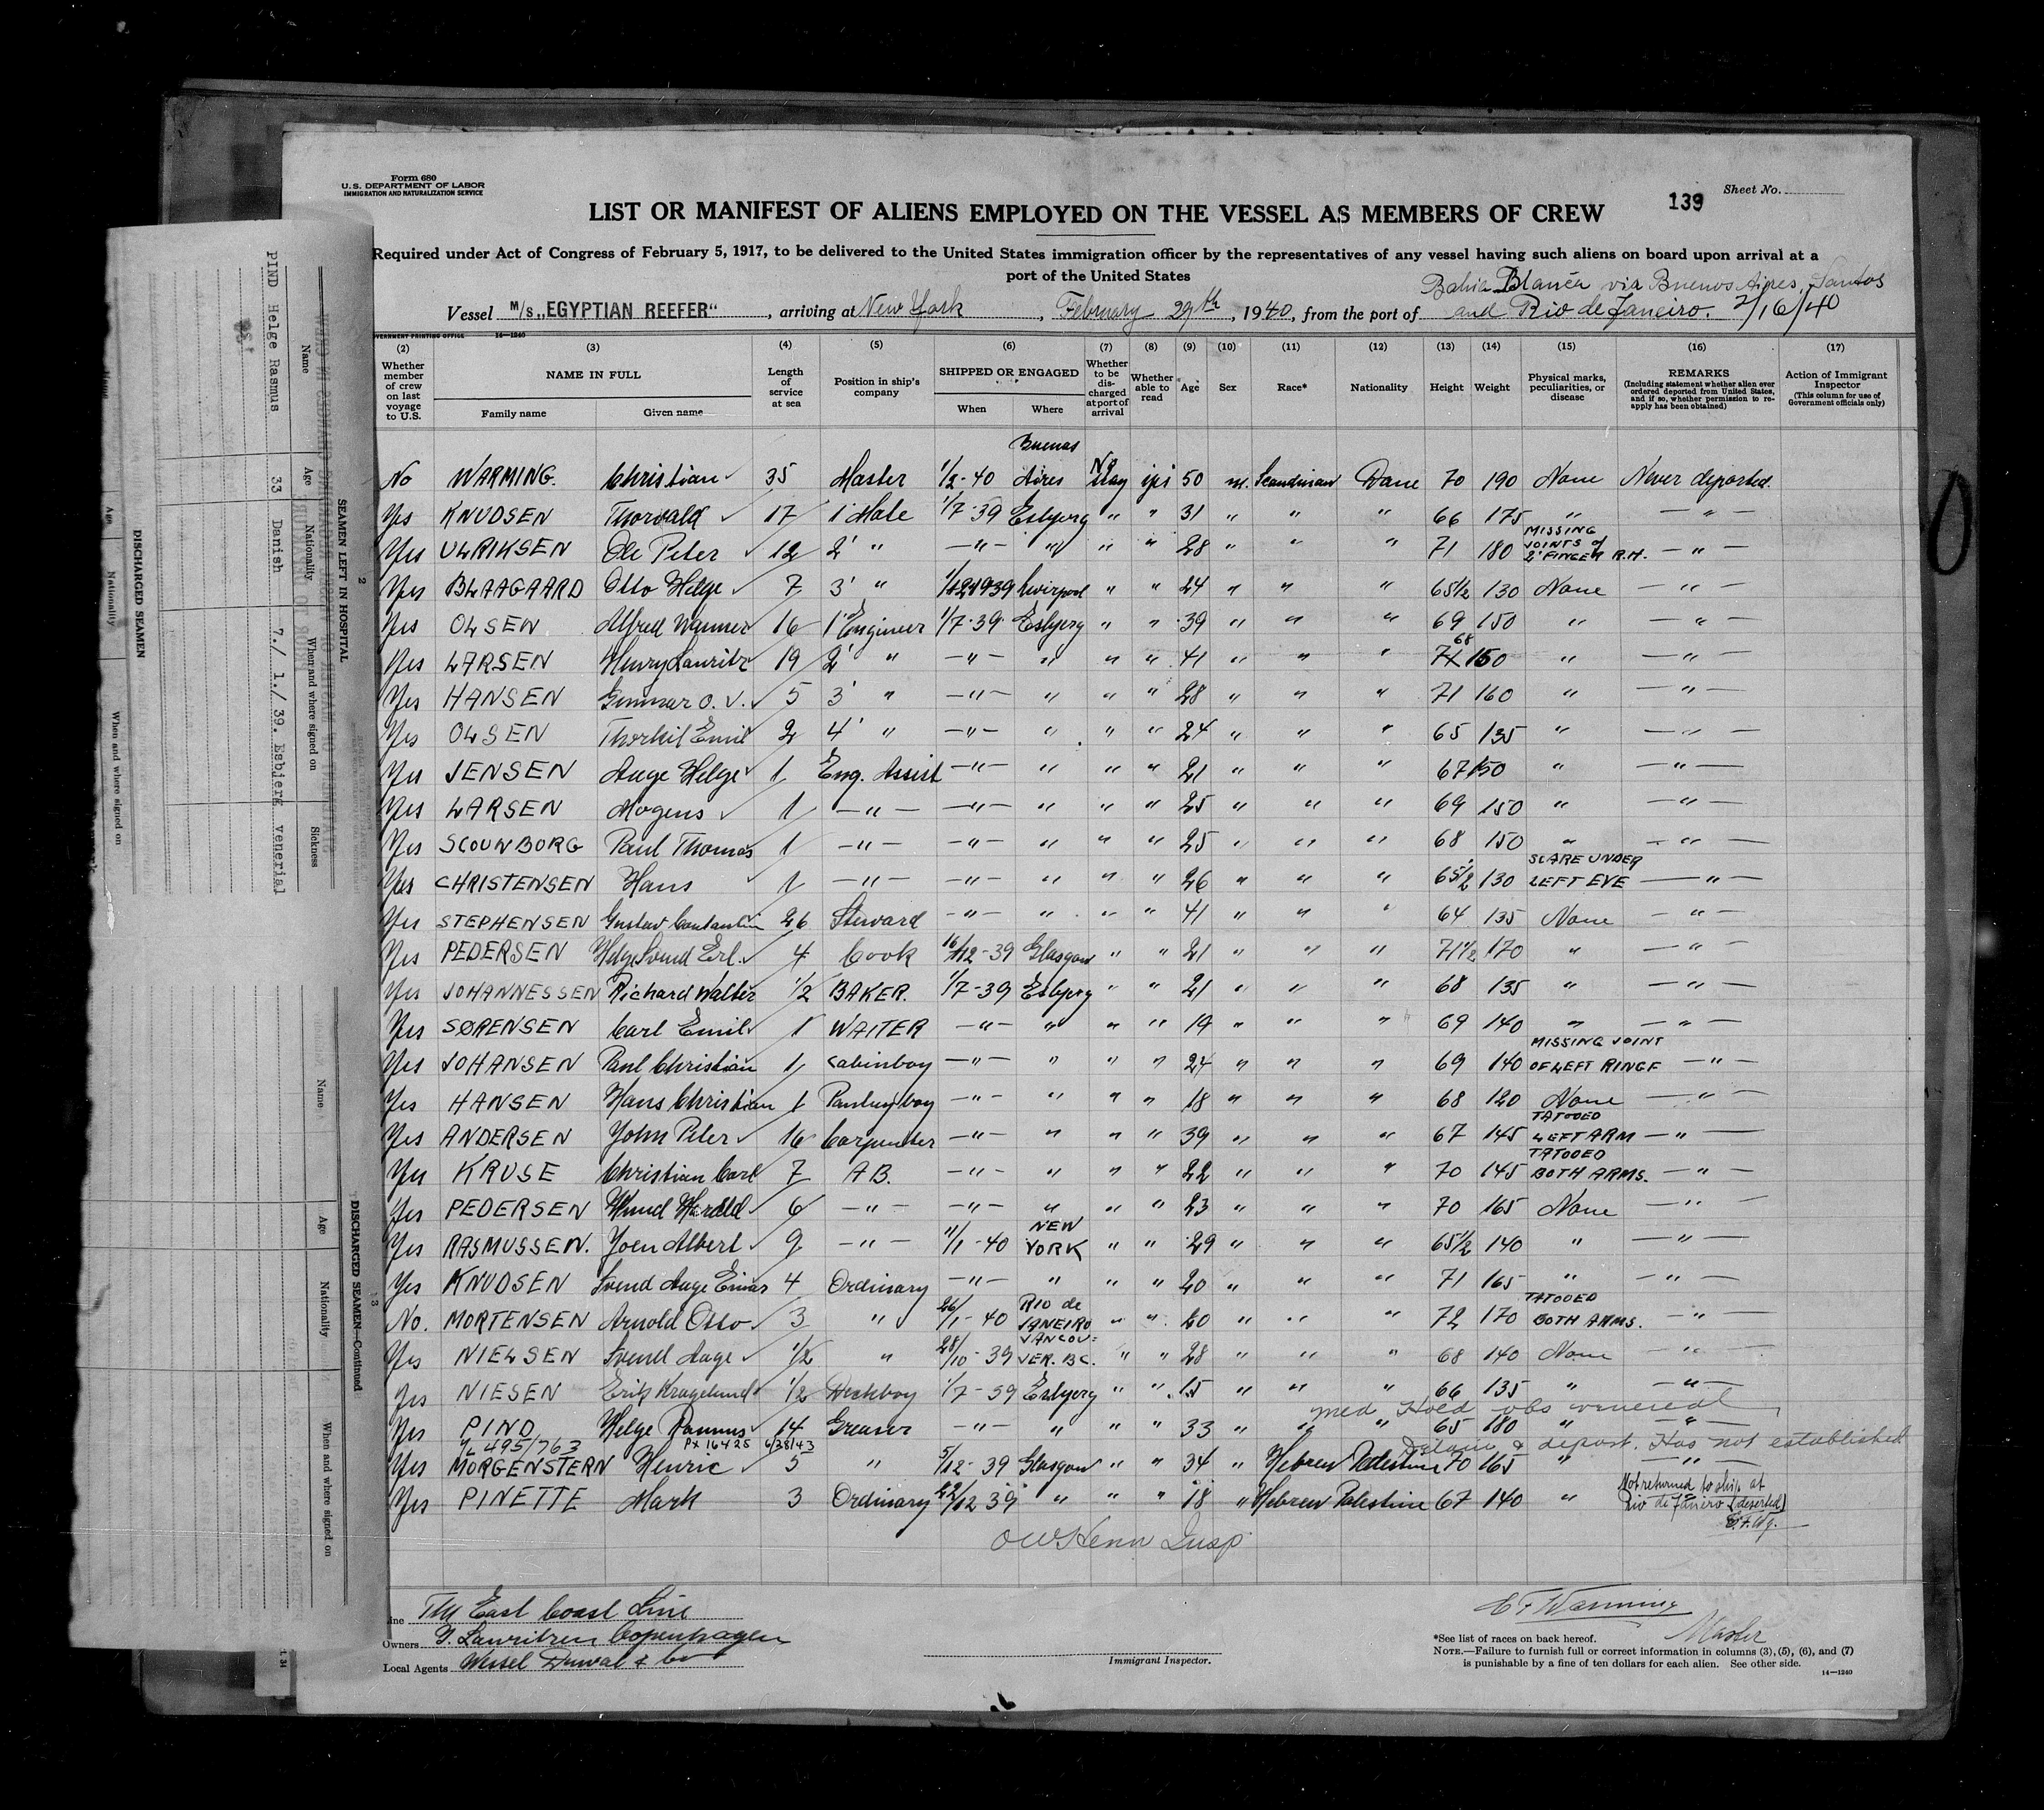 Form 680
U.S. DEPARTMENT OF LABOR
IMMIGRATION AND NATURALIZATION SERVICE
Sheet No.
139
LIST OR MANIFEST OF ALIENS EMPLOYED ON THE VESSEL AS MEMBERS OF CREW
Required under Act of Congress of February 5, 1917, to be delivered to the United States immigration officer by the representatives of any vessel having such aliens on board upon arrival at a
port of the United States
Bahia Blanca via Buenos Aires, Santos
Vessel M/s „EGYPTIAN REEFER“, arriving at New York, February 29th, 1940, from the port of and Rio de Janeiro. 2/16/40
14-1240
(2) (3) (4) (5) (6) (7) (8) (9) (10) (11) (12) (13) (14) (15) (16) (17)
Whether member of crew on last voyage to U.S.
NAME IN FULL
Family name
Given name
Length of service at sea
Position in ship's company
SHIPPED OR ENGAGED
When
Where
Whether to be discharged at port of arrival
Whether able to read
Age
Sex
Race*
Nationality
Height
Weight
Physical marks, peculiarities, or disease
REMARKS
(Including statement whether alien ever ordered deported from United States, and if so, whether permission to reapply has been obtained)
Action of Immigrant Inspector
(This column for use of Government officials only)
No WARMING. Christian 35 Master 1/2-40 Buenos Aires No 50 m. Scandinav Dane 70 190 None Never deported.
Yes KNUDSEN Thorvald 17 1' Mate 1/7-39 Esbjerg " " 31 " " " 66 175 " — " —
Yes ULRIKSEN Ole Peter 12 2' " — " — " " " 28 " " " 71 180 MISSING JOINTS of 2' FINGER R.H. — " —
Yes BLAAGAARD Otto Helge 7 3' " Liverpool " " 24 " " " 65 1/2 130 None — " —
Yes OLSEN Alfred 16 1' Engineer 1/7-39 Esbjerg " " 39 " " " 69 150 " — " —
Yes LARSEN Henry Lauritz 19 2' " — " — " " " 41 " " " 68 150 " — " —
Yes HANSEN Gunnar O. V. 5 3' " — " — " " " 28 " " " 71 160 " — " —
Yes OLSEN Thorkil Emil 2 4' " — " — " " " 24 " " " 65 135 " — " —
Yes JENSEN Aage Helge 1 Eng. Assist — " — " " " 21 " " " 67 150 " — " —
Yes LARSEN Mogens 1 — " — — " — " " " 25 " " " 69 150 " — " —
Yes SCOUWBORG Paul Thomas 1 — " — — " — " " " 25 " " " 68 150 " — " —
Yes CHRISTENSEN Hans 1 — " — — " — " " " 26 " " " 65 1/2 130 SCARE UNDER LEFT EYE — " —
Yes STEPHENSEN Gustav 26 Steward — " — " " " 41 " " " 64 135 None — " —
Yes PEDERSEN Helge Svend Erl. 4 Cook 16/12-39 Glasgow " " 21 " " " 71 1/2 170 " — " —
Yes JOHANNESSEN Richard Walter 1/2 BAKER. 1/7-39 Esbjerg " " 21 " " " 68 135 " — " —
Yes SØRENSEN Carl Emil 1 WAITER — " — " " " 19 " " " 69 140 " — " —
Yes JOHANSEN Paul Christian 1 Cabinboy — " — " " " 24 " " " 69 140 MISSING JOINT OF LEFT RINGF — " —
Yes HANSEN Hans Christian 1 Pantryboy — " — " " " 18 " " " 68 120 None — " —
Yes ANDERSEN John Peter 16 Carpenter — " — " " " 39 " " " 67 145 TATOOED LEFT ARM — " —
Yes KRUSE Christian Carl 7 AB. — " — " " " 22 " " " 70 145 TATOOED BOTH ARMS. — " —
Yes PEDERSEN Knud Harald 6 — " — — " — " " " 23 " " " 70 165 None — " —
Yes RASMUSSEN. Joen Albert 9 — " — 11/1-40 NEW YORK " " 29 " " " 65 1/2 140 " — " —
Yes KNUDSEN Svend Aage Einar 4 Ordinary — " — " " " 20 " " " 71 165 " — " —
No. MORTENSEN Arnold Otto 3 " 26/1-40 RIO de JANEIRO " " 60 " " " 72 170 TATOOED BOTH ARMS. — " —
Yes NIELSEN Svend Aage 1/2 " 28/10-39 VANCOUVER. BC. " " 28 " " " 68 140 None — " —
Yes NIESEN Erik Kragelund 1/2 Deckboy 1/7-39 Esbjerg " " 15 " " " 66 135 " — " —
med Hold obs venereal
Yes PIND Helge Rasmus 14 Greaser — " — " " " 33 " " " 65 180 " — " —
495/763 Px 16425 6/28/43
Detain & deport. Has not established
Yes MORGENSTERN Henric 5 " 5/12-39 Glasgow " " 34 " Hebrew Palestine 70 165 " — " —
Yes PINETTE Mark 3 Ordinary 22/12 39 " " " 18 " Hebrew Palestine 67 140 " Not returned to ship at Rio de Janeiro (deserted)
Insp
Line The East Coast Line
Owners J. Lauritzen Copenhagen
Local Agents Wessel Duval & Co
Immigrant Inspector.
C F Warming
Master
*See list of races on back hereof.
NOTE.—Failure to furnish full or correct information in columns (3), (5), (6), and (7)
is punishable by a fine of ten dollars for each alien. See other side.
14—1240
SEAMEN LEFT IN HOSPITAL
2
Name
Age
Nationality
When and where signed on
Sickness
PIND Helge Rasmus 33 Danish 7./ 1./39. Esbjerg venerial
DISCHARGED SEAMEN
Name
Age
Nationality
When and where signed on
DISCHARGED SEAMEN—Continued
3
Name
Age
Nationality
When and where signed on